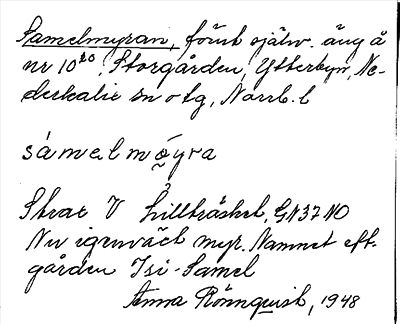 Samelmyran, förut självr. äng å
nr 10²⁰, Storgården, Ytterbyn, Ne-
derkalix sn o tg, Norrb. l
sámelmy̨ra
Strax V Lillträsket, GN37 NO
Nu igenväxt myr. Namnet eft.
gården Isi-Samel
Anna Rönnquist, 1948